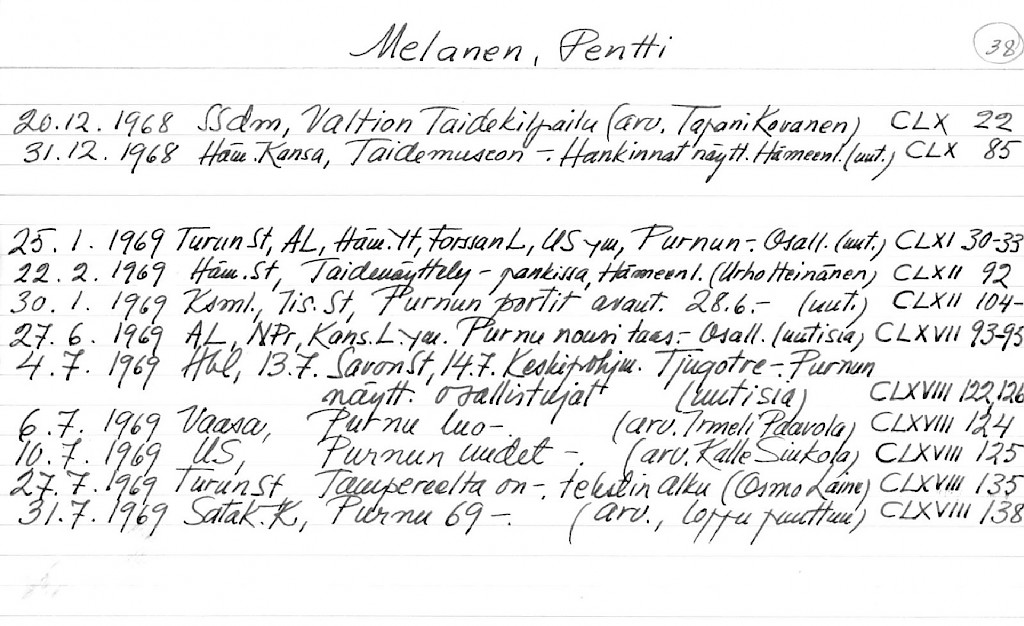 Melanen, Pentti
38
20.12.1968 SSdm, Valtion Taidekilpailu (arv. Tapani Kovanen) CLX 22
31.12.1968 Häm.Kansa, Taidemuseon -. Hankinnat näytt. Hämeenl. (uut.) CLX 85
25.1.1969 TurunSt, AL, Häm.Yt, ForssanL, US ym, Purnun -. Osall. (uut.) CLXI 30-33
22.2.1969 Häm.St, Taidenäyttely - pankissa, Hämeenl. (Urho Heinänen) CLXII 92
30.1.1969 Ksml., Iis.St, Purnun portit avaut. 28.6.- (uut.) CLXII 104-
27.6.1969 AL, NPr, Kans.L.ym. Purnu nousi taas.- Osall. (uutisia) CLXVII 93-95
4.7.1969 Hbl, 13.7. SavonSt, 14.7. Keskipohjm. Tjugotre -. Purnun
näytt. osallistujat (uutisia) CLXVIII 122,126
6.7.1969 Vaasa, Purnu luo -. (arv. Irmeli Paavola) CLXVIII 124
10.7.1969 US, Purnun uudet -. (arv. Kalle Siukola) CLXVIII 125
27.7.1969 TurunSt Tampereelta on -. tekstin alku (Osmo Laine) CLXVIII 135
31.7.1969 Satak.K, Purnu 69 -. (arv., loppu puuttuu) CLXVIII 138